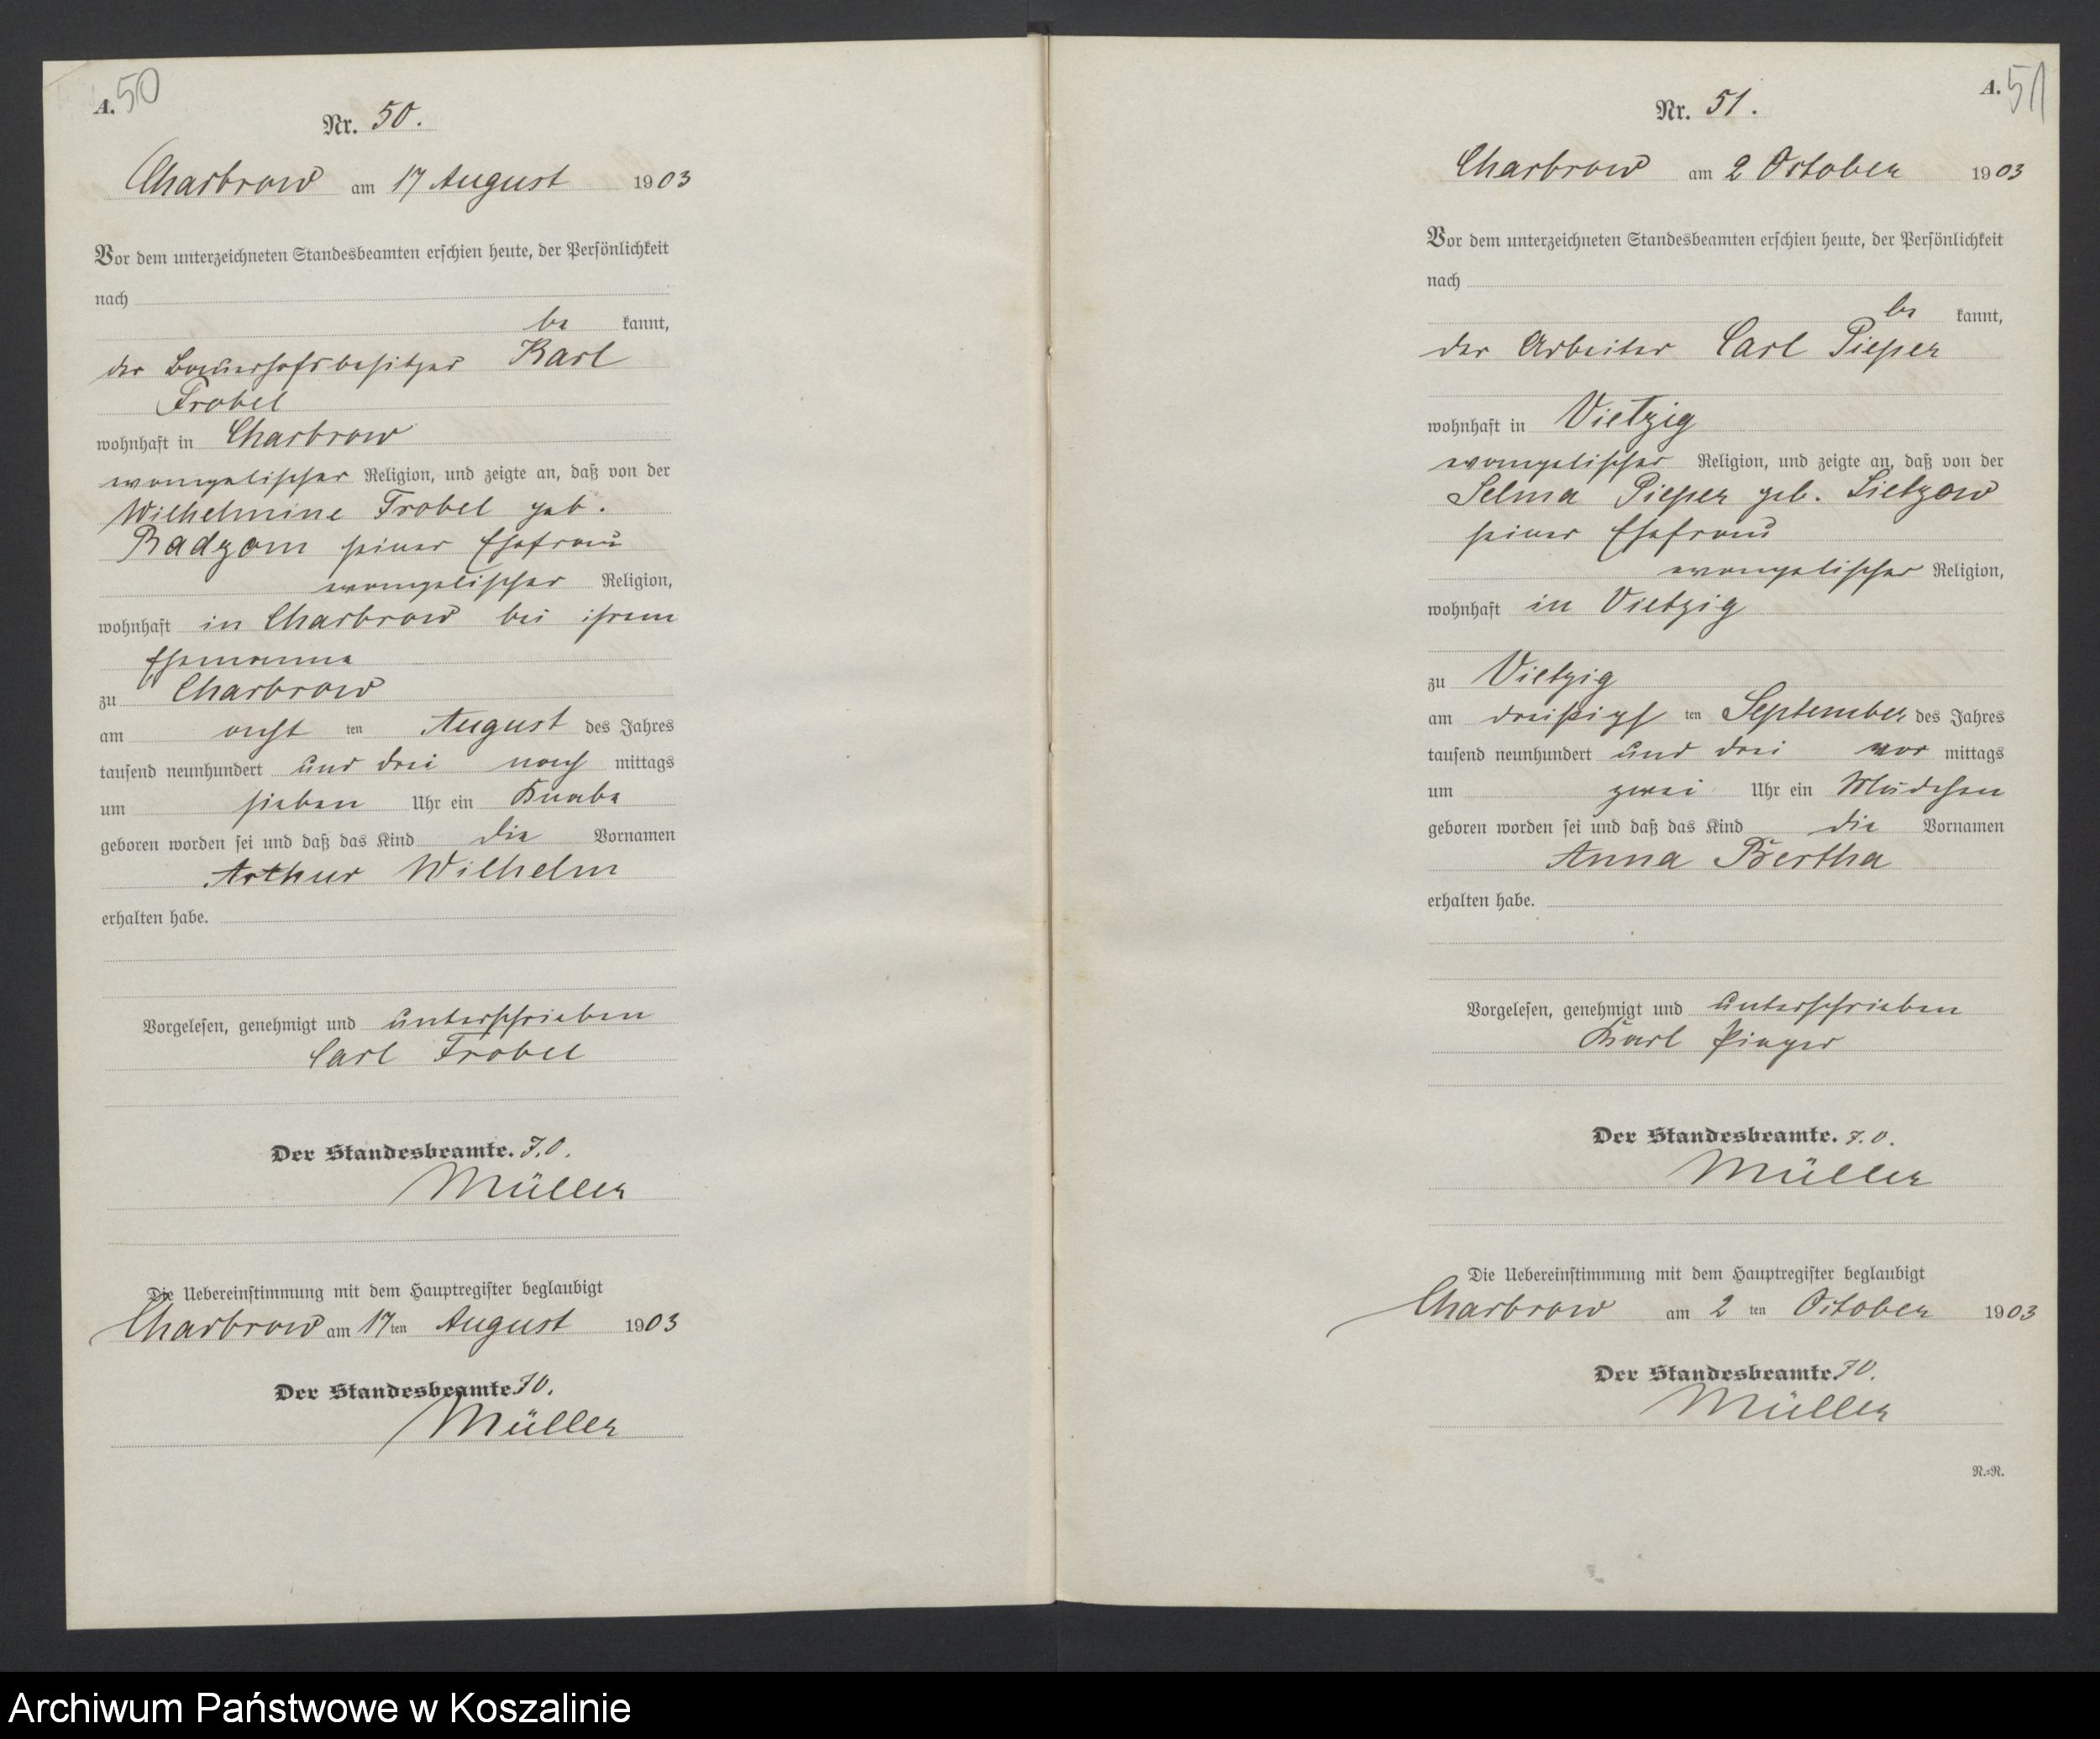 A. 50
Nr. 50.
Charbrow am 17 August 1903
Vor dem unterzeichneten Standesbeamten erschien heute, der Persönlichkeit
nach
be kannt,
der Bauerhofsbesitzer Karl
Trobel
wohnhaft in Charbrow
evangelischer Religion, und zeigte an, daß von der
Wilhelmine Trobel geb.
Radzom seiner Ehefrau
evangelischer Religion,
wohnhaft in Charbrow bei ihrem
Ehemanne
zu Charbrow
am acht ten August des Jahres
tausend neunhundert und drei nach mittags
um sieben Uhr ein Knabe
geboren worden sei und daß das Kind die Vornamen
Arthur Wilhelm
erhalten habe.
Vorgelesen, genehmigt und unterschrieben
Carl Trobel
Der Standesbeamte. I.V.
Müller
Die Uebereinstimmung mit dem Hauptregister beglaubigt
Charbrow am 17 ten August 1903
Der Standesbeamte. I.V.
Müller
A. 51
Nr. 51.
Charbrow am 2 October 1903
Vor dem unterzeichneten Standesbeamten erschien heute, der Persönlichkeit
nach
be kannt,
der Arbeiter Carl Pieper
wohnhaft in Vietzig
evangelischer Religion, und zeigte an, daß von der
Selma Pieper geb. Lietzow
seiner Ehefrau
evangelischer Religion,
wohnhaft in Vietzig
zu Vietzig
am dreißigs ten September des Jahres
tausend neunhundert und drei vor mittags
um zwei Uhr ein Mädchen
geboren worden sei und daß das Kind die Vornamen
Anna Bertha
erhalten habe.
Vorgelesen, genehmigt und unterschrieben
Karl Pieper
Der Standesbeamte. I.V.
Müller
Die Uebereinstimmung mit dem Hauptregister beglaubigt
Charbrow am 2 ten October 1903
Der Standesbeamte. I.V.
Müller
N.=R.
Archiwum Państwowe w Koszalinie